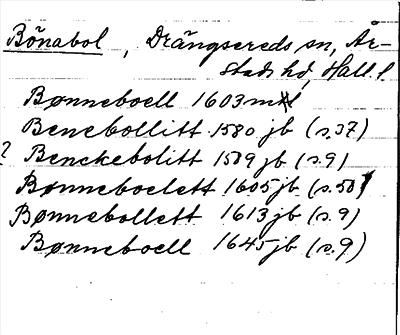 Bönabol, Drängsereds sn, År-
stads hd, Hall. l.
Bønneboell 1603 mtl
Benebollitt 1580 jb (s.37)
? Benckebolitt 1589 jb (s.9)
Bønneboelett 1605 jb (s.50)
Bønnebollett 1613 jb (s.9)
Bønneboell 1645 jb (s.9)